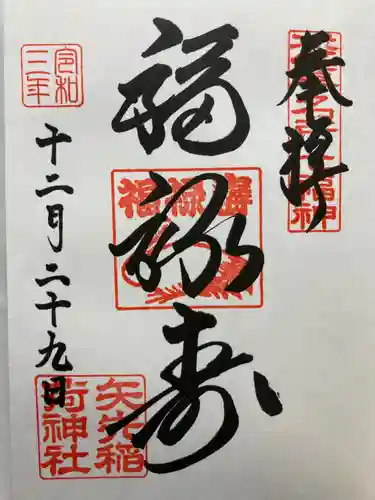 奉拝
福禄寿
福禄寿
令和
三年
十二月二十九日
矢先稲
荷神社